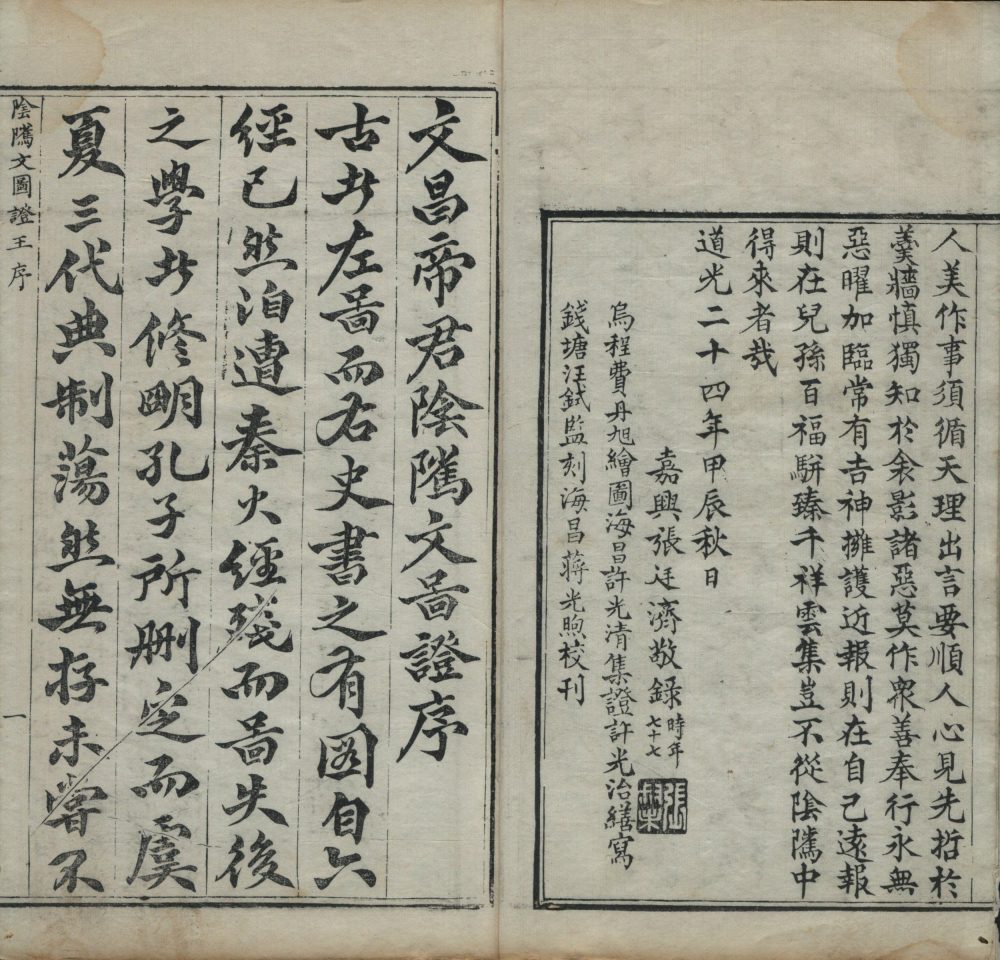 人美作事須循天理出言要順人心見先哲於
羹墻慎獨知於衾影諸惡莫作衆善奉行永無
惡曜加臨常有吉神擁護近報則在自己遠報
則在兒孫百福駢臻千祥雲集豈不從陰隲中
得來者哉
道光二十四年甲辰秋日
嘉興張廷濟敬錄
時年
七十七
烏程費丹旭繪圖海昌許光清集證許光治繕寫
錢塘汪鉽監刻海昌蔣光煦校刊
文昌帝君陰隲文啚證序
古者左啚而右史書之有圖自六
經已然洎遭秦火經殘而啚失後
之學者修明孔子所刪定而虞
夏三代典制蕩然無存未嘗不
陰隲文圖證王序
一